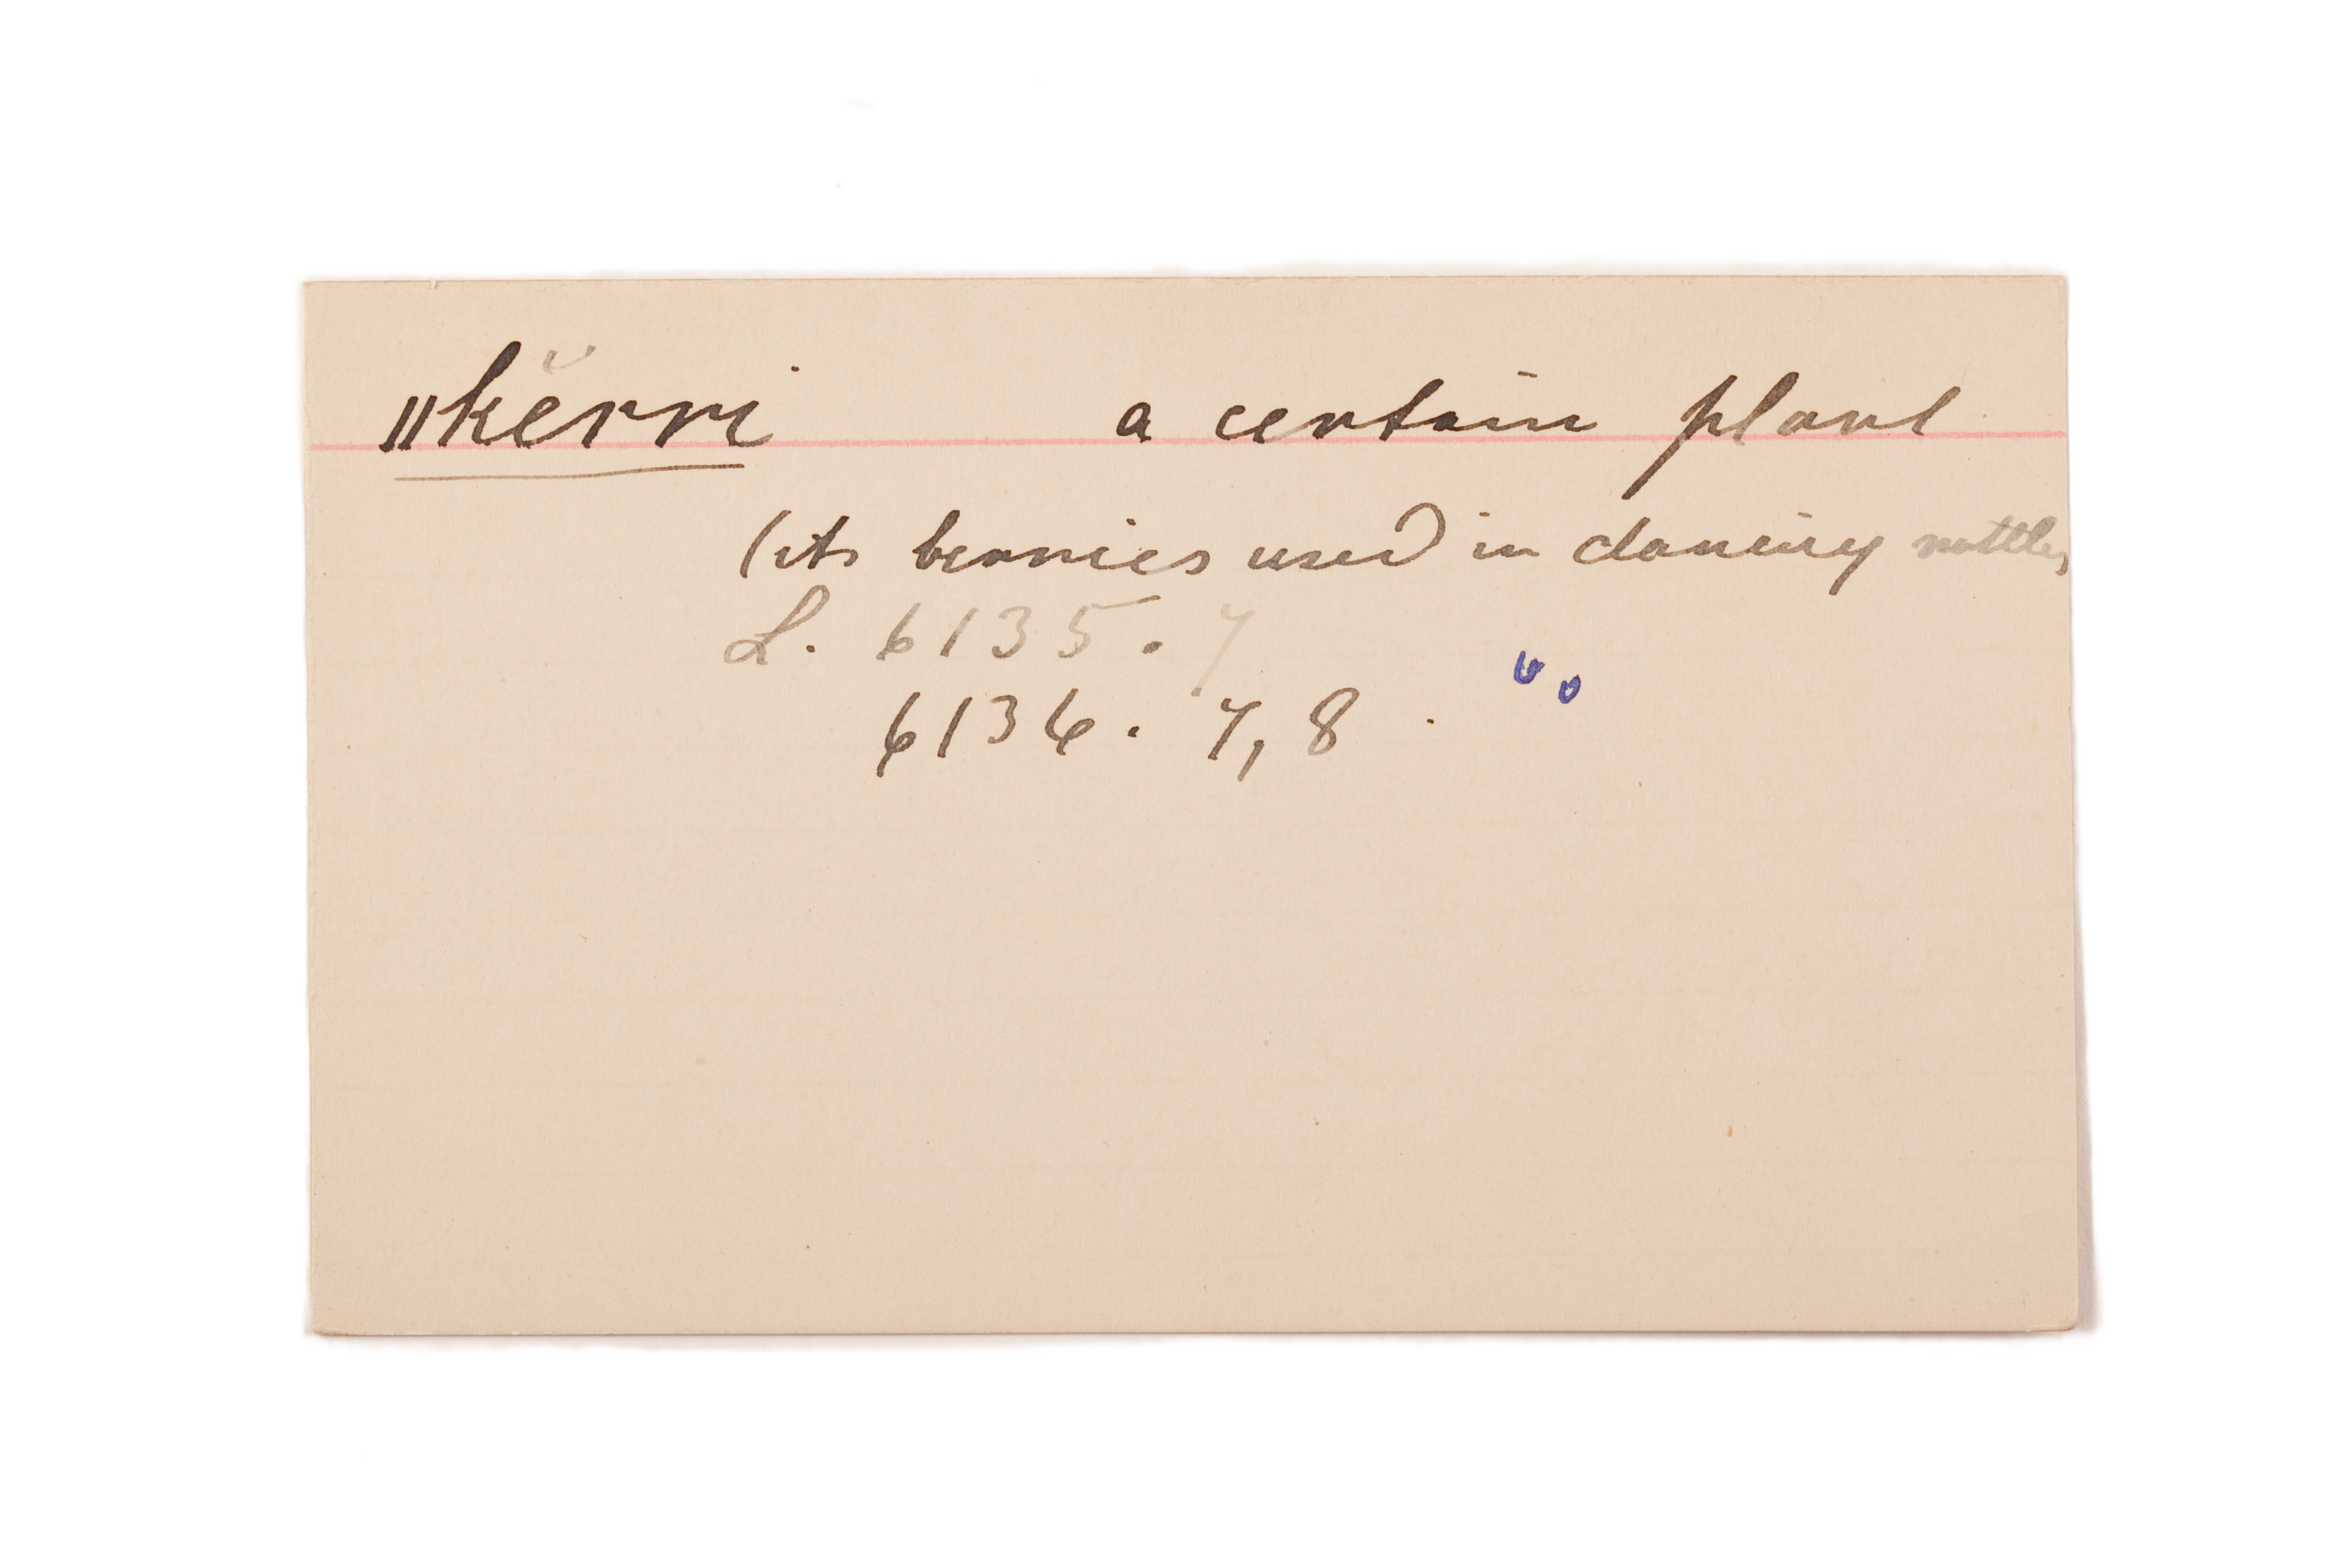 ǁkĕrri a certain plant
(its berries used in dancing rattles
L. 6135. 7
6136. 7, 8.